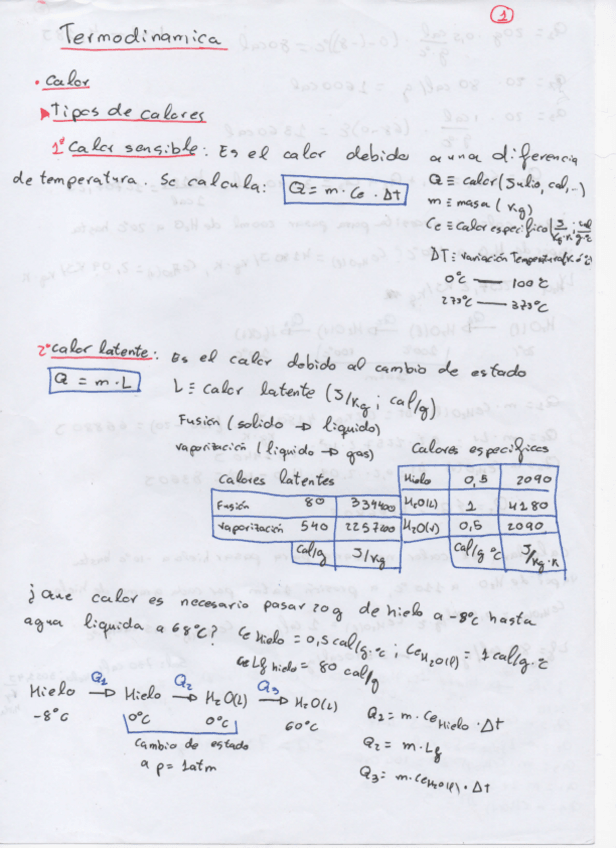 1
Termodinamica
• Calor
Tipos de calores
1º Calor sensible: Es el calor debido a una diferencia
de temperatura. Se calcula: Q = m · Ce · Δt
Q ≡ calor (Julio, cal, -)
m ≡ masa (Kg)
Ce ≡ Calor especifico (J/Kg·K ; cal/g·ºC)
ΔT ≡ variación Temperatura (K ó ºC)
0ºC — 100ºC
273ºC — 373ºC
2º Calor latente: Es el calor debido al cambio de estado
Q = m · L
L ≡ calor latente (J/Kg ; cal/g)
Fusión (solido → liquido)
vaporización (liquido → gas)
Calores latentes
Fusión 80 334400
Vaporización 540 2257200
cal/g J/Kg
Calores especificos
Hielo 0,5 2090
H2O(L) 1 4180
H2O(v) 0,5 2090
cal/g ºC J/Kg·K
¿Que calor es necesario pasar 20g de hielo a -8ºC hasta
agua liquida a 68ºC? Ce Hielo = 0,5 cal/g·ºC ; Ce H2O(l) = 1 cal/g·ºC
Lf hielo = 80 cal/g
Hielo Q1 → Hielo Q2 → H2O(L) Q3 → H2O(L)
-8ºC 0ºC 0ºC 60ºC
Cambio de estado
a p = 1 atm
Q1 = m · Ce Hielo · Δt
Q2 = m · Lf
Q3 = m · Ce H2O(l) · Δt